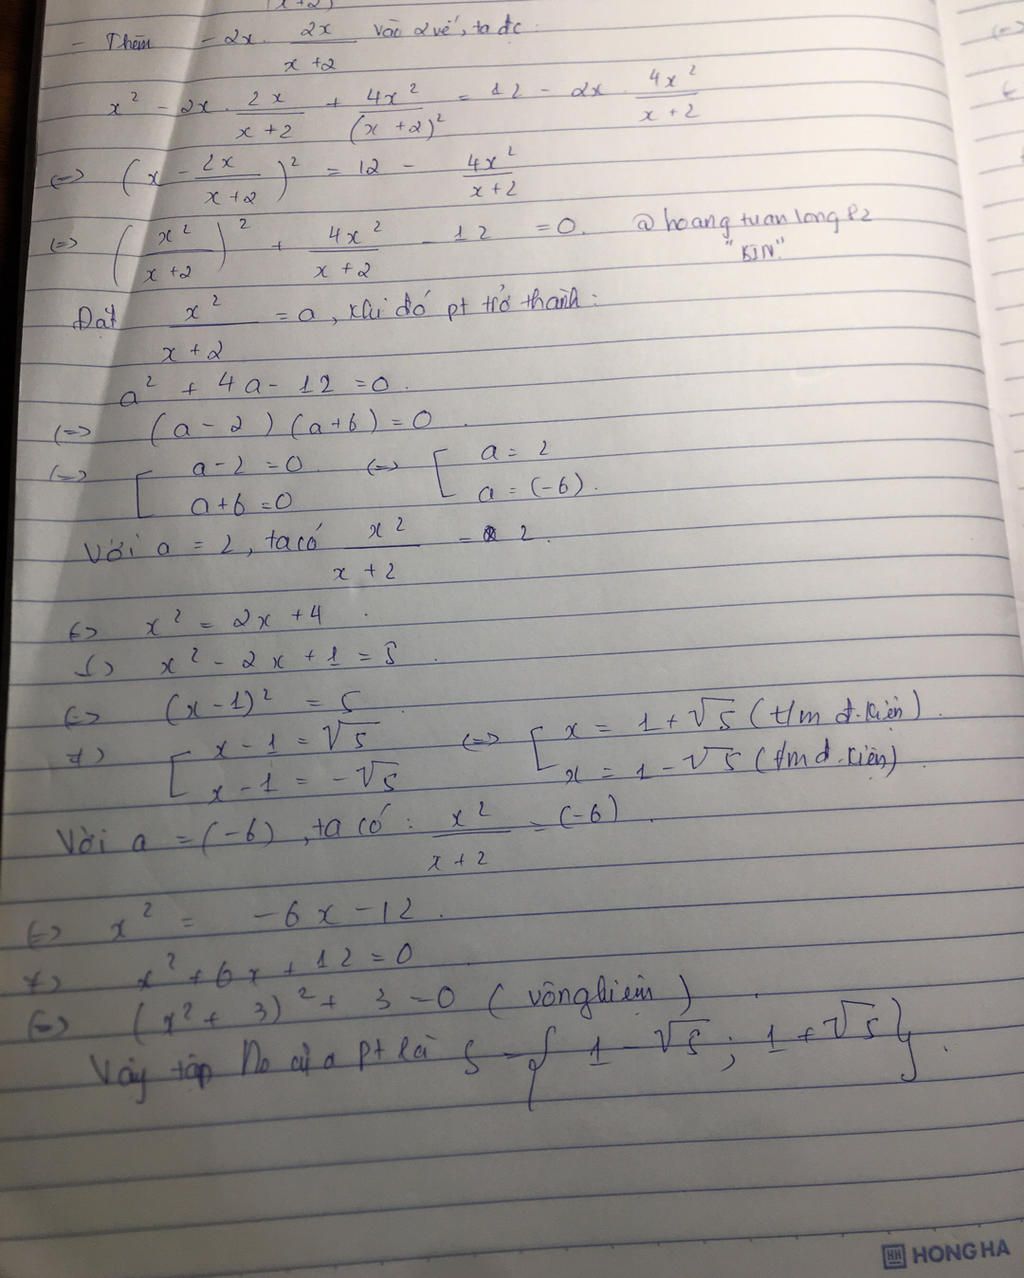 (x+2)
- Thêm -2x. 2x/(x+2) vào 2 vế, ta đc:
x² - 2x . 2x/(x+2) + 4x²/(x+2)² = 12 - 2x . 4x²/(x+2)
<=> (x - 2x/(x+2))² = 12 - 4x²/(x+2)
<=> (x²/(x+2))² + 4x²/(x+2) - 12 = 0. @hoangtuanlong82
"KIN"
Đặt x²/(x+2) = a, khi đó pt trở thành:
a² + 4a - 12 = 0.
<=> (a - 2)(a+6) = 0.
<=> [ a-2 = 0 <=> [ a = 2
a+6 = 0 a = (-6).
Với a = 2, ta có x²/(x+2) = 2.
<=> x² = 2x + 4.
<=> x² - 2x + 1 = 5.
<=> (x-1)² = 5.
<=> [ x - 1 = √5 <=> [ x = 1 + √5 (t/m đ.kiện).
x - 1 = -√5 x = 1 - √5 (t/m đ.kiện).
Với a = (-6), ta có: x²/(x+2) = (-6).
<=> x² = -6x - 12.
<=> x² + 6x + 12 = 0
<=> (x² + 3)² + 3 = 0 (vô nghiệm).
Vậy tập No của pt là S = { 1 - √5 ; 1 + √5 }.
HH HONG HA